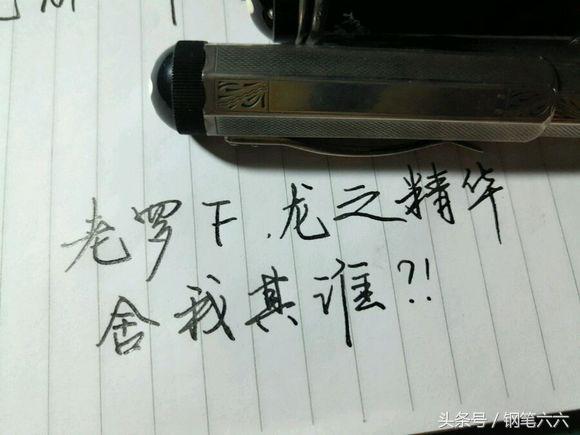 老罗下.龙之精华
舍我其谁?!
头条号／钢笔六六